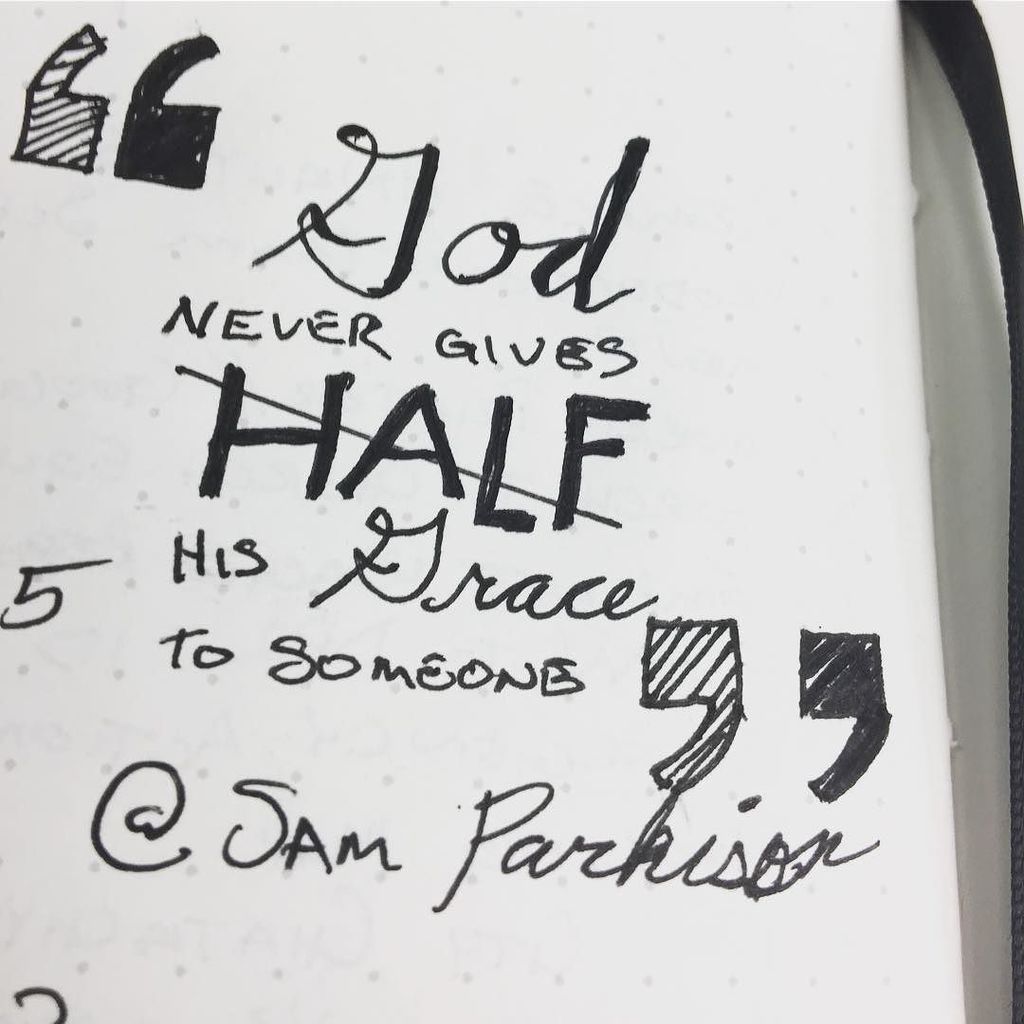 “God
NEVER GIVES
HALF
HIS Grace
5
TO SOMEONE”
@SAM Parkison
2